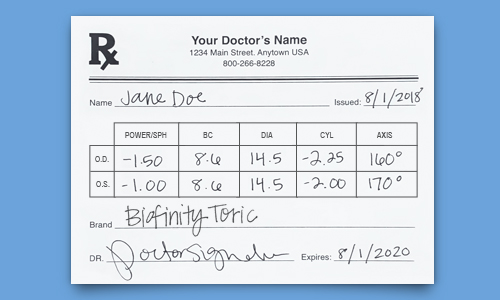 Rx
Your Doctor's Name
1234 Main Street. Anytown USA
800-266-8228
Name Jane Doe Issued: 8/1/2018
POWER/SPH BC DIA CYL AXIS
O.D. -1.50 8.6 14.5 -2.25 160°
O.S. -1.00 8.6 14.5 -2.00 170°
Brand Biofinity Toric
DR. Doctor Signature Expires: 8/1/2020